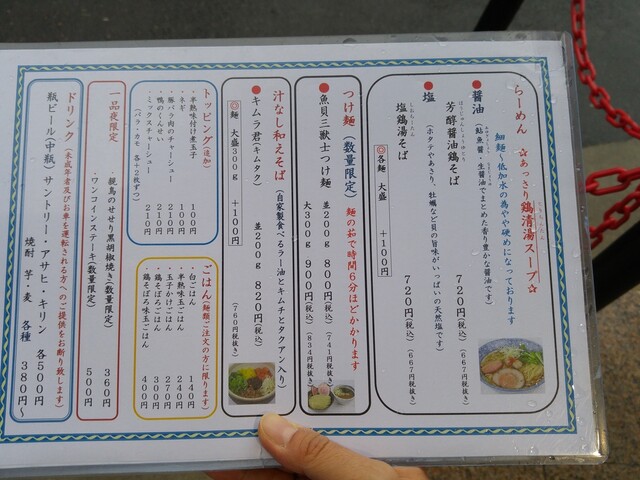 らーめん ☆あっさり鶏清湯スープ☆
細麺～低加水の為やや硬めになっております
●醤油
(鮎魚醤・生醤油でまとめた香り豊かな醤油です)
芳醇醤油鶏そば 720円(税込) (667円税抜き)
●塩
(ホタテやあさり、牡蠣など貝の旨味がいっぱいの天然塩です)
塩鶏湯そば 720円(税込) (667円税抜き)
◎各麺 大盛 +100円
つけ麺(数量限定) 麺の茹で時間6分ほどかかります
●魚貝三獣士つけ麺 並200g 800円(税込) (741円税抜き)
大300g 900円(税込) (834円税抜き)
汁なし和えそば (自家製食べるラー油とキムチとタクアン入り)
●キムラ君(キムタク) 並200g 820円(税込)
(760円税抜き)
◎麺 大盛300g +100円
トッピング(追加)
・半熟味付け煮玉子 100円
・ネギ 150円
・豚バラ肉のチャーシュー 210円
・鴨のくんせい 210円
・ミックスチャーシュー 210円
(バラ・カモ 各+2枚ずつ)
ごはん(麺類ご注文の方に限ります)
・白ごはん 140円
・半熟味玉ごはん 240円
・玉子かけごはん 270円
・鶏そぼろごはん 300円
・鶏そぼろ味玉ごはん 400円
一品夜限定
・親鳥のせせり黒胡椒焼き(数量限定) 360円
・ワンコインステーキ(数量限定) 500円
ドリンク(未成年者及びお車を運転される方へのご提供をお断り致します)
瓶ビール(中瓶)・サントリー・アサヒ・キリン 各500円
焼酎 芋・麦 各種 380円～